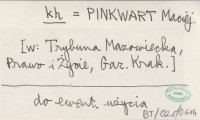 kh = PINKWART Maciej
[w: Trybuna Mazowiecka,
Prawo i Życie, Gaz. Krak.]
do ewent. użycia
BT/025/0614